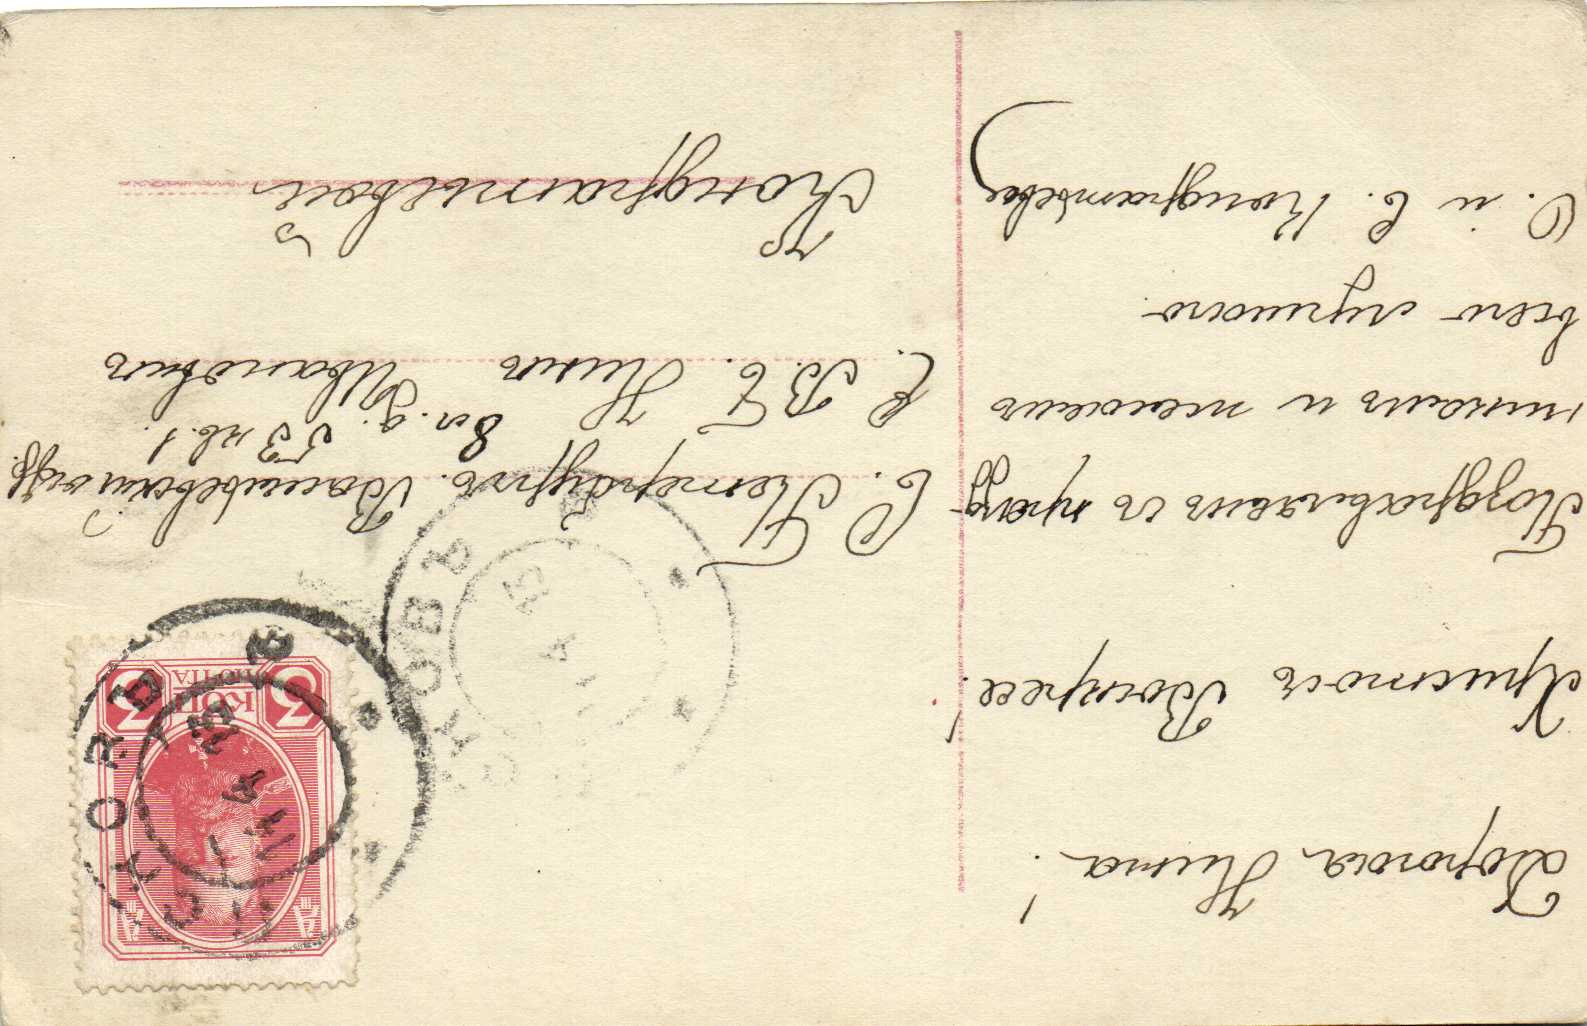 Дорогая Нина!
Христосъ Воскресе!
Поздравляемъ съ празд-
никомъ и желаемъ
всего лучшаго
О. и Е. Кондратьевы
С. Петербургъ. Васильевскій остр.
8 л. д. 53 кв. 1.
Е. В. Б. Нинѣ Ивановнѣ
Кондратьевой
3 КОП 3
ПОЧТА